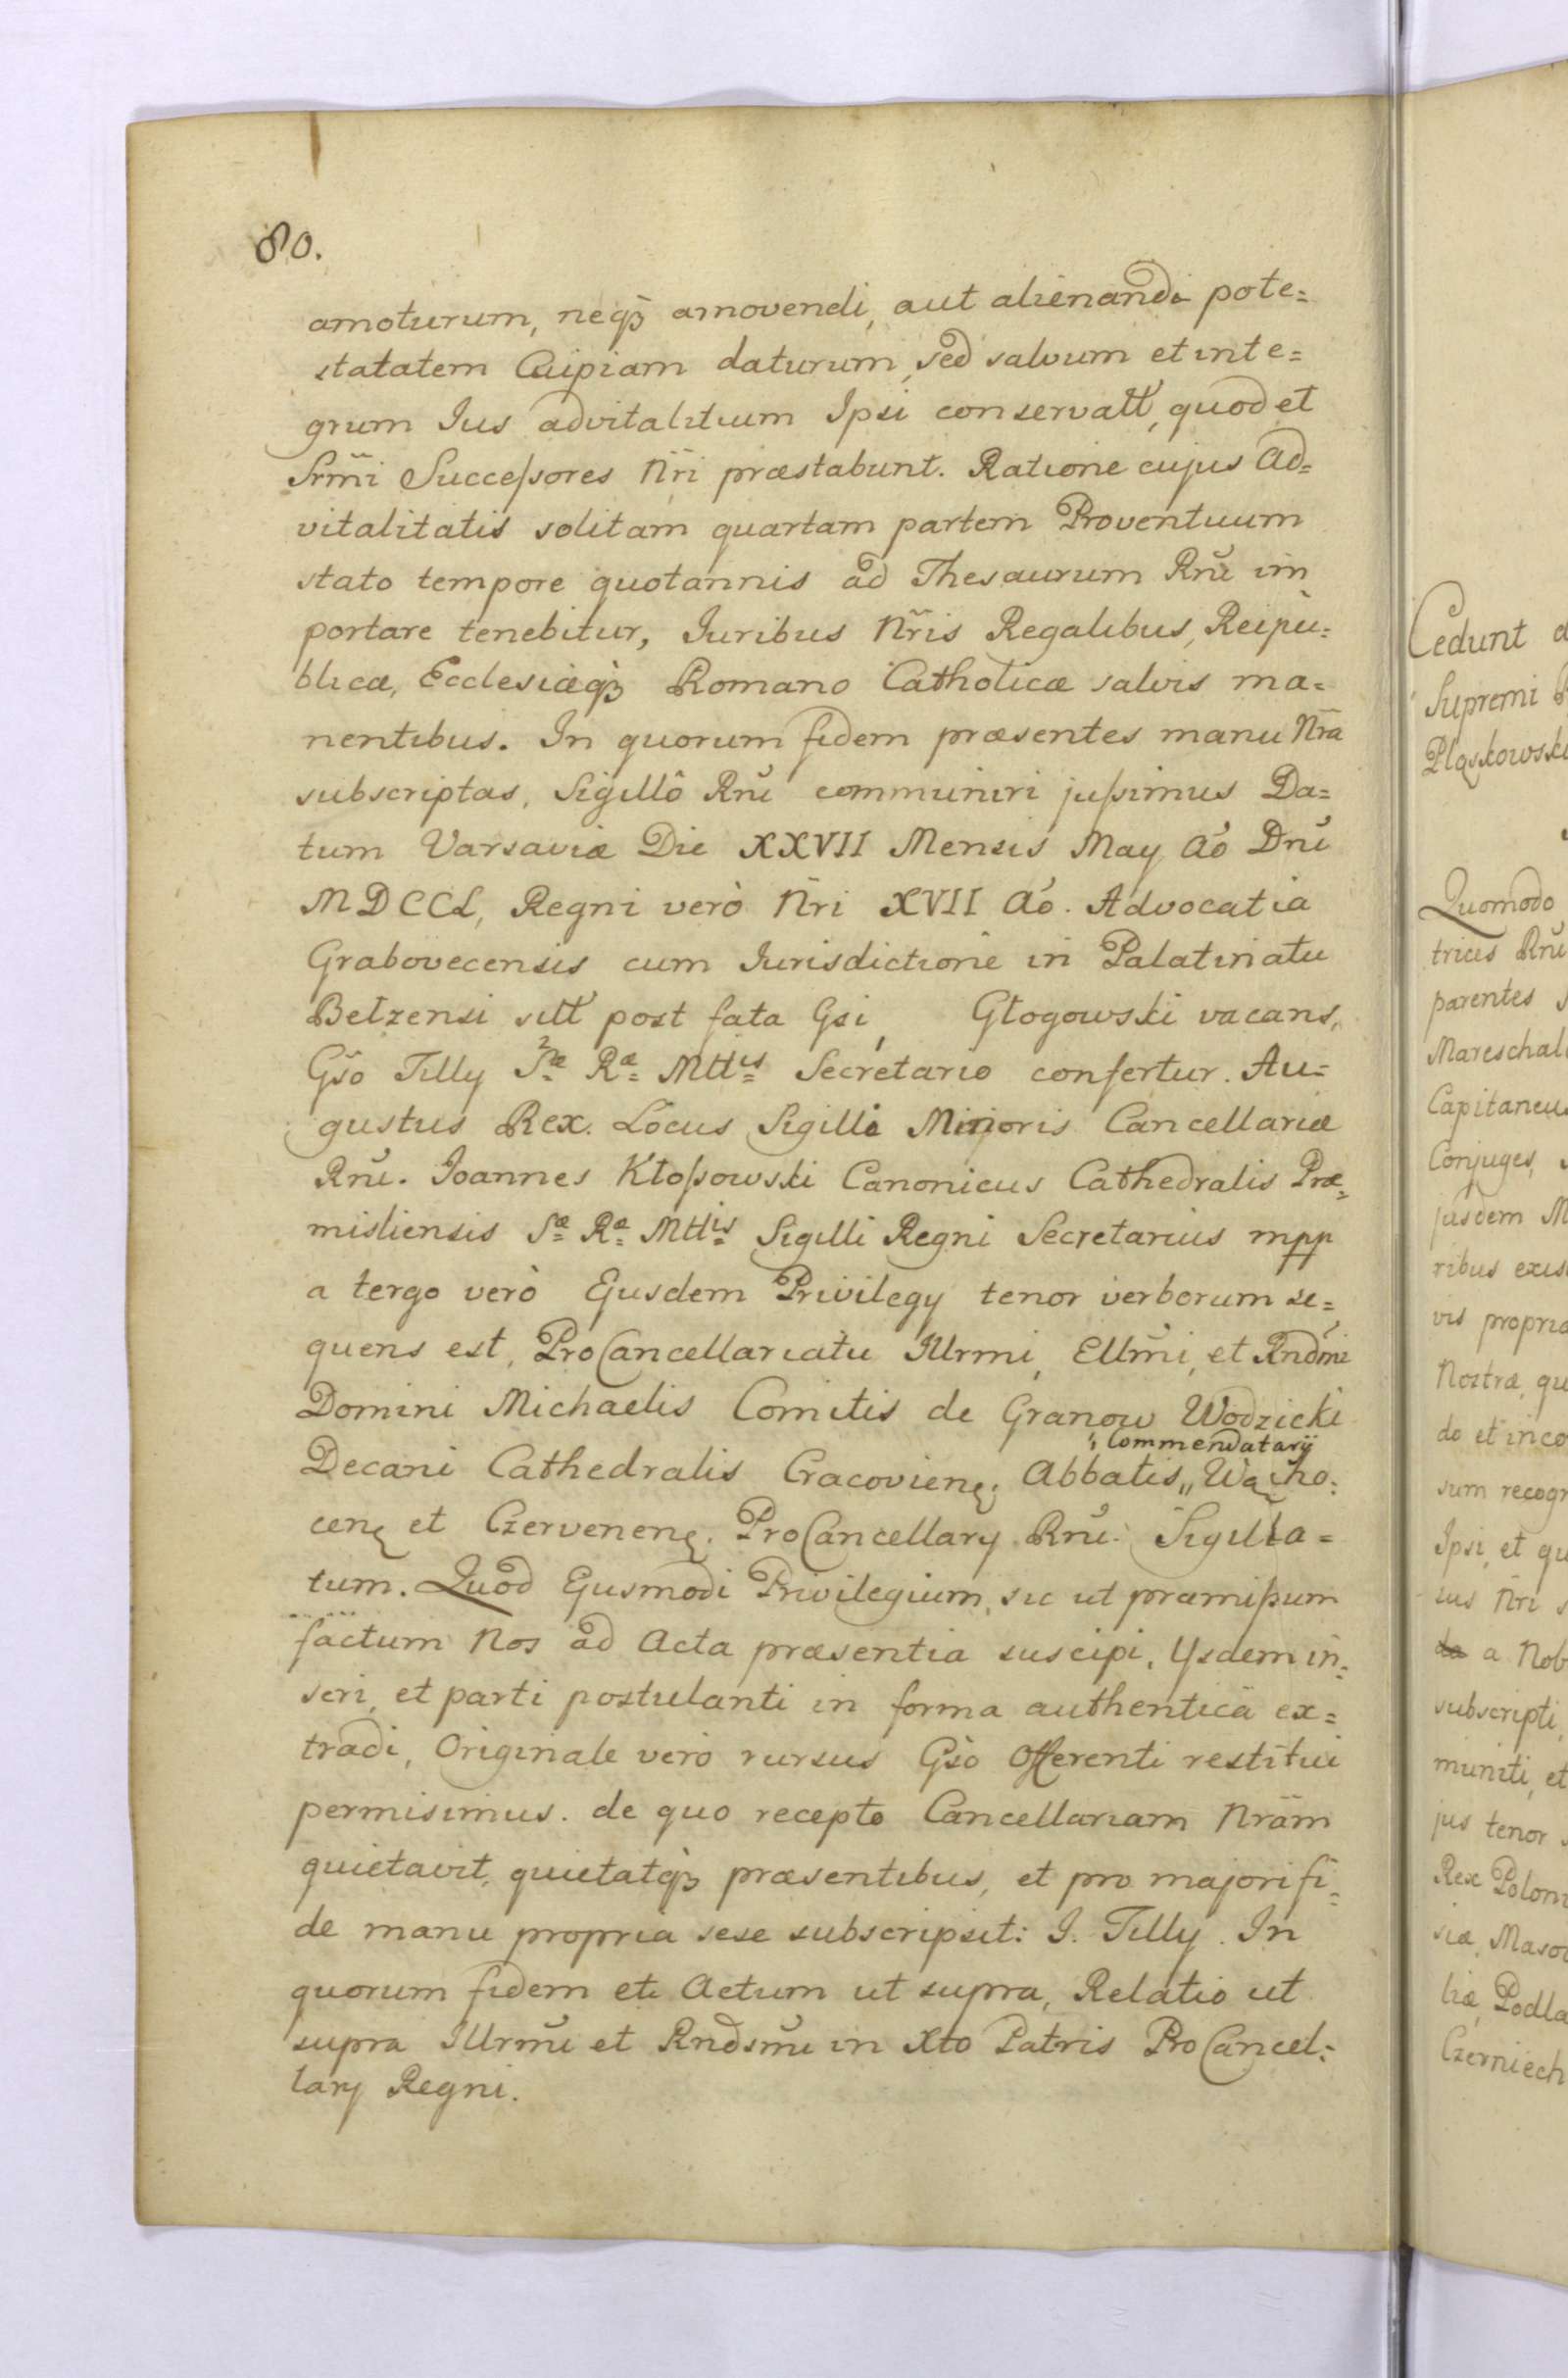 80.
amoturum, neqꝫ amovendi, aut alienandi pote=
statatem Cuipiam daturum, sed salvum et inte=
grum Ius advitalitium Ipsi conservatt, quod et
Srm̃i Succeſsores Nr̃i præstabunt. Ratione cujus Ad=
vitalitatis solitam quartam partem Proventuum
stato tempore quotannis ad Thesaurum Rnĩ im
portare tenebitur, Iuribus Nr̃is Regalibus, Reipu=
blicæ, Ecclesiæqꝫ Romano Catholicæ salvis ma=
nentibus. In quorum fidem præsentes manu Nr̃a
subscriptas, Sigillô Rnĩ communiri juſsimus Da=
tum Varsaviæ Die XXVII Mensis May Aõ Dnĩ
MDCCL, Regni verò Nr̃i XVII Aõ. Advocatia
Grabovecensis cum Iurisdictione in Palatinatu
Belzensi sitt post fata Gsi, Głogowski vacans,
Gs̃o Tilly Sæ Ræ Mttis Secretario confertur. Au=
gustus Rex. Locus Sigilli Minoris Cancellariæ
Rnĩ. Joannes Kłoſsowski Canonicus Cathedralis Præ=
misliensis Sæ Ræ Mttis Sigilli Regni Secretarius mpp
a tergo verò Ejusdem Privilegy tenor verborum se=
quens est, ProCancellariatu Illrmi, Ellm̃i, et Rndm̃i
Domini Michaelis Comitis de Granow Wodzicki
Commendatarij
Decani Cathedralis Cracovien: Abbatis,, Wącho=
cen et Czervenen. ProCancellary Rnĩ. Sigilla=
tum. Quod Ejusmodi Privilegium, sic ut præmiſsum
factum Nos ad Acta præsentia suscipi, Ysdem in=
seri, et parti postulanti in forma authentica ex=
tradi, Originale vero rursus Gs̃o Offerenti restitui
permisimus. de quo recepto Cancellariam Nrãm
quietavit, quietatqꝫ præsentibus, et pro majori fi=
de manu propria sese subscripsit: I. Tilly. In
quorum fidem ett Actum ut supra, Relatio ut
supra Illrm̃i et Rndsm̃i in Xto Patris ProCancel=
lary Regni.
Cedunt
Supremi
Pląskowski
Quomodo
trices Rnĩ
parentes
Mareschal
Capitaneus
Conjuges,
jusdem M
ribus exis
vis propria
Nostræ, qu
do et inco
sum recogn
Ipsi, et qu
ius Nr̃i s
a Nob
subscripti,
muniti, et
jus tenor
Rex Poloni
siæ, Masov
liæ, Podla
Czerniech